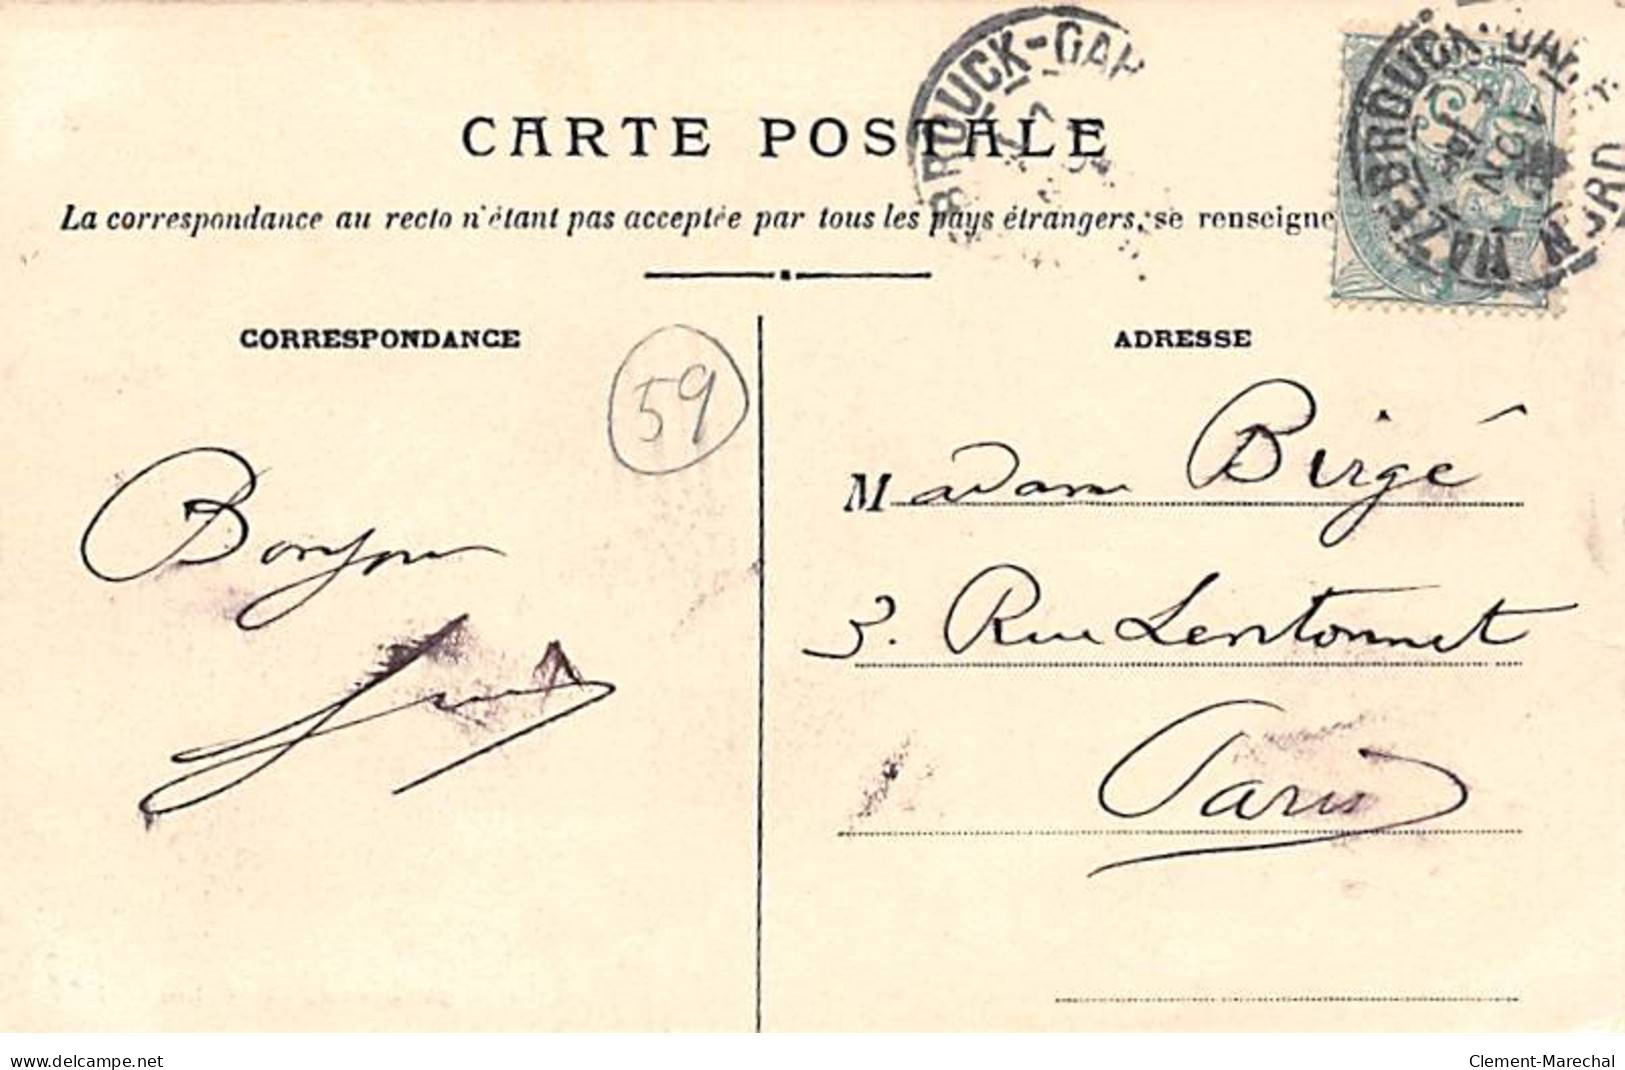 CARTE POSTALE
La correspondance au recto n'étant pas acceptée par tous les pays étrangers, se renseigne
BROUCK-GAR
HAZEBROUCK-GAR
NORD
CORRESPONDANCE
ADRESSE
59
Bonjour
Madame Birgé
3. Rue Lentonnet
Paris
www.delcampe.net
Clement-Marechal